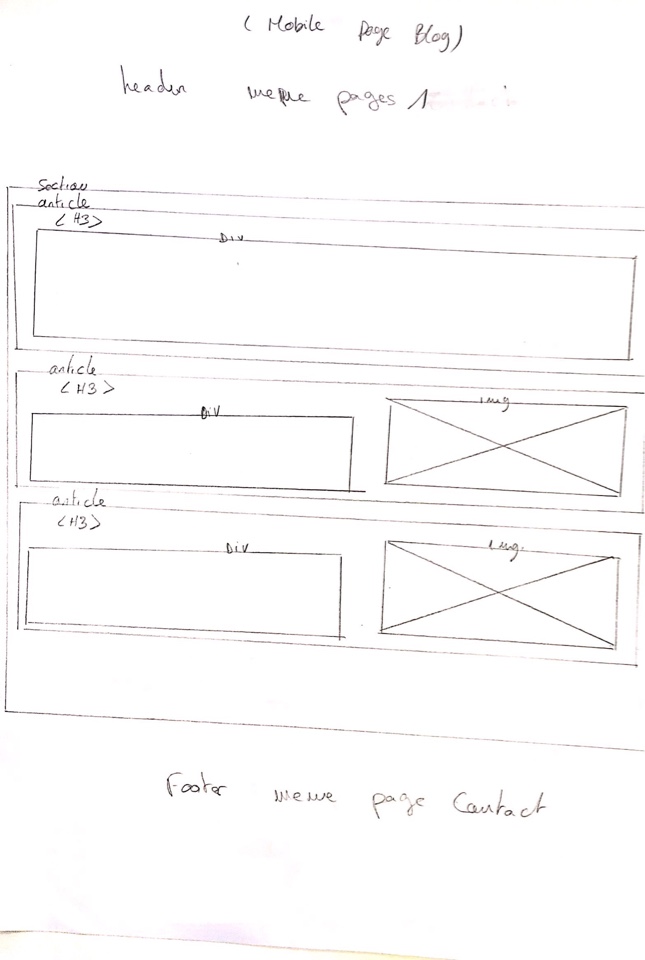 ( Mobile Page Blog)
header meme pages 1
Section
article
<H3>
Div
article
<H3>
Div img
article
<H3>
Div img.
Footer meme page Contact